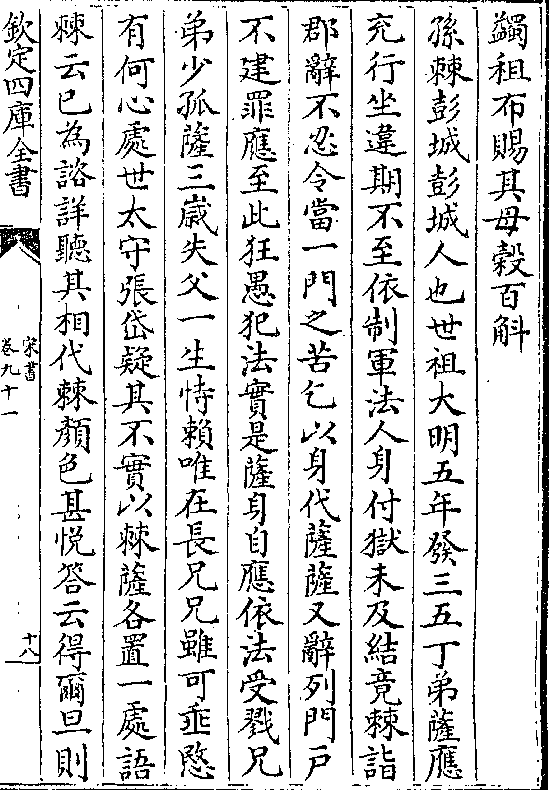 蠲租布賜其母穀百斛
孫棘彭城彭城人也世祖大明五年發三五丁弟薩應
充行坐違期不至依制軍法人身付獄未及結竟棘詣
郡辭不忍令當一門之苦乞以身代薩薩又辭列門戶
不建罪應至此狂愚犯法實是薩身自應依法受戮兄
弟少孤薩三歲失父一生恃賴唯在長兄兄雖可垂愍
有何心處世太守張岱疑其不實以棘薩各置一處語
棘云已為諮詳聽其相代棘顏色甚悦答云得爾旦則
欽定四庫全書
宋書
卷九十一
十八